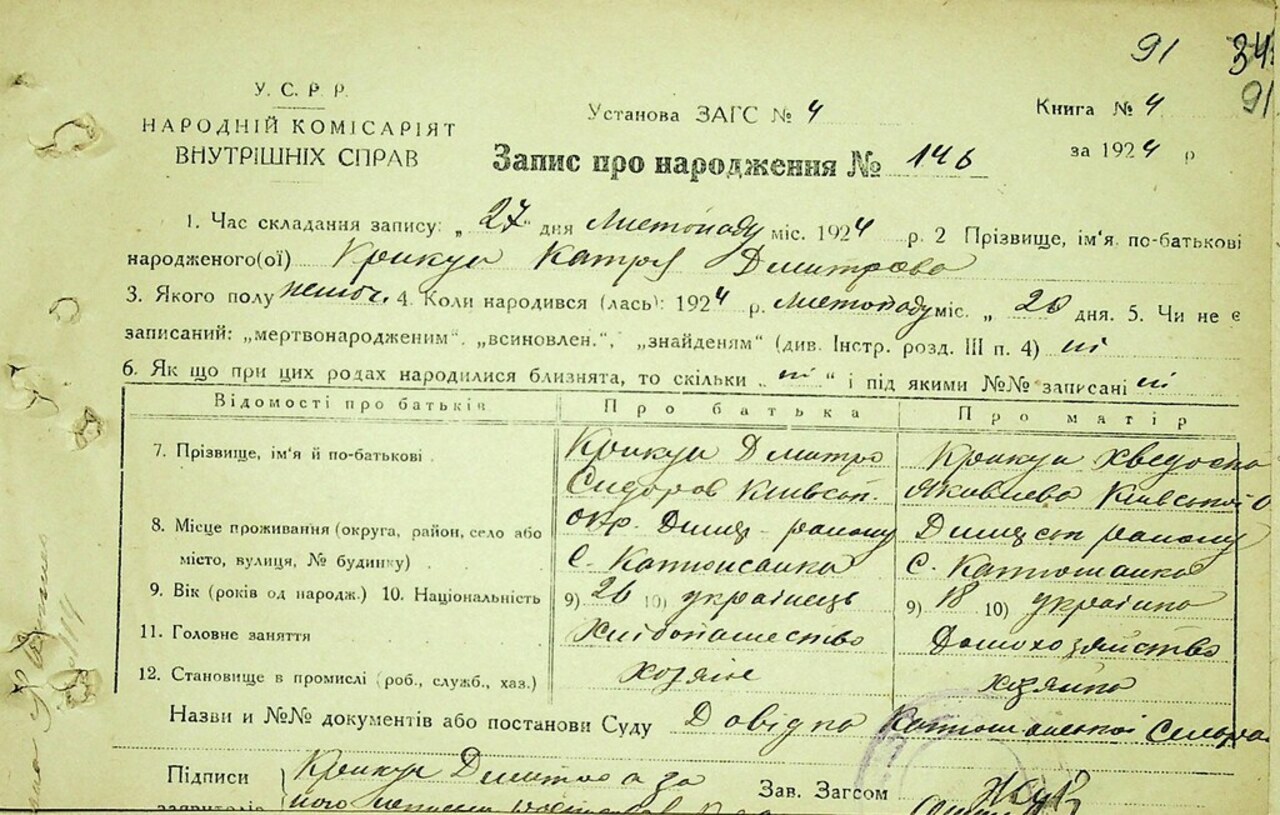 91 34
91
У. С. Р. Р.
НАРОДНІЙ КОМІСАРІЯТ
ВНУТРІШНІХ СПРАВ
Установа ЗАГС № 4
Книга № 4
за 1924 р
Запис про народження № 146
1. Час складання запису: „27" дня Листопаду міс. 1924 р. 2 Прізвище, ім'я, по-батькові
народженого(ої) Крикун Катря Дмитрова
3. Якого полу жіноч. 4. Коли народився (лась): 1924 р. Листопаду міс. „ 20 дня. 5. Чи не є
записаний: „мертвонародженим". „всиновлен.", „знайденям" (див. Інстр. розд. III п. 4) ні
6. Як що при цих родах народилися близнята, то скільки „ ні " і під якими №№ записані ні
Відомості про батьків Про батька Про матір
7. Прізвище, ім'я й по-батькові Крикун Дмитро Крикун Хведоска
Сидоров Київськ. Яковлева Київської о
8. Місце проживання (округа, район, село або окр. Димер району Димерськ району
місто, вулиця, № будинку) с. Катюжанка с. Катюжанка
9. Вік (років од народж.) 10. Національність 9) 26 10) українець 9) 18 10) українка
11. Головне заняття Хлібопашество Домохозяйство
12. Становище в промислі (роб., служб., хаз.) хозяїн хозяйка
Назви и №№ документів або постанови Суду Довідка Катюжанської Сільради
Підписи Крикун Дмитро а за
заявителів його
Зав. Загсом